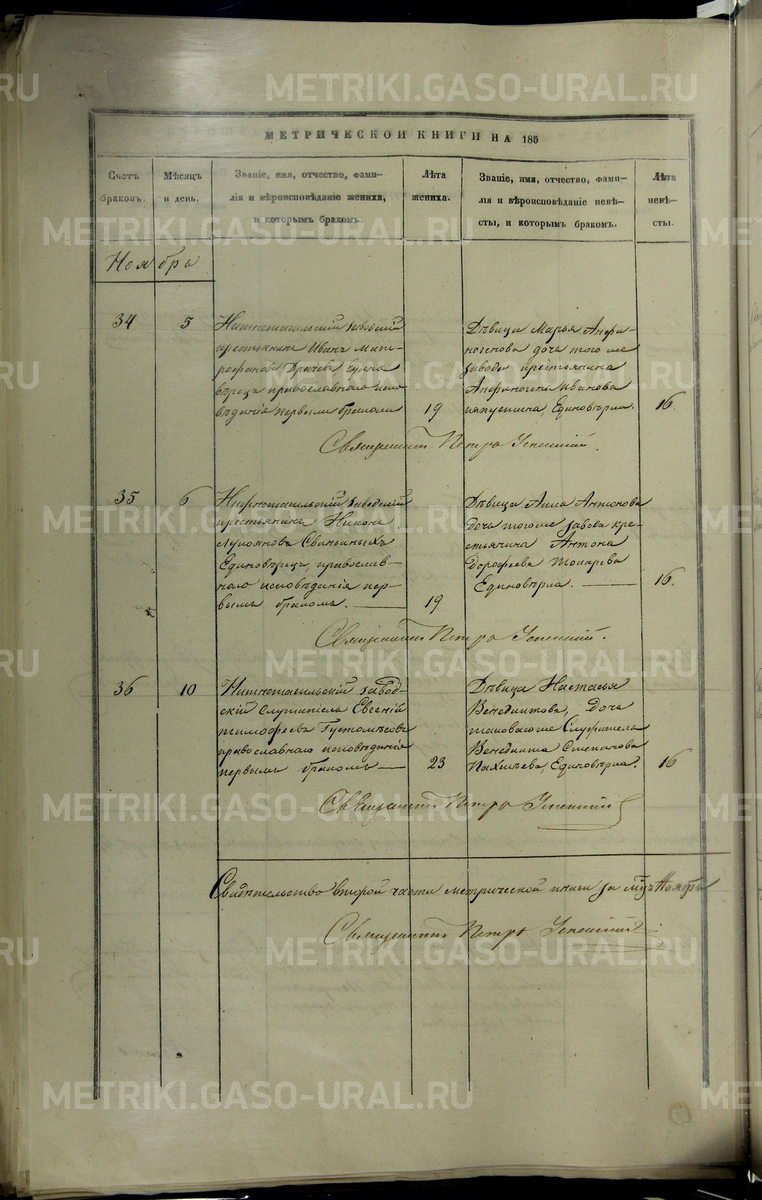 METRIKI.GASO-URAL.RU
МЕТРИЧЕСКОЙ КНИГИ НА 185
Счетъ браковъ.
Мѣсяцъ и день.
Званіе, имя, отчество, фами-
лія и вѣроисповѣданіе жениха,
и которымъ бракомъ.
Лѣта жениха.
Званіе, имя, отчество, фами-
лія и вѣроисповѣданіе невѣ-
сты, и которымъ бракомъ.
Лѣта невѣ-
сты.
Ноября
34
5
Нижнетагильскій заводскій
крестьянинъ Иванъ Мит-
рофановъ Едино
вѣрецъ православнаго испо
вѣданія первымъ бракомъ
19
Дѣвица Марья Анфи-
ногенова дочь того же
завода крестьянина
Анфиногена Иванова
Единовѣрка.
16.
Священникъ Петръ Успенскій.
35
6
Нижнетагильскій заводскій
крестьянинъ Никонъ
Лукояновъ Свиньиныхъ
Единовѣрецъ, православ-
наго исповѣданія пер-
вымъ бракомъ.
19
Дѣвица Анна Антонова
дочь того же завода кре-
стьянина Антона
Дорофеева Токарева
Единовѣрка.
16.
Священникъ Петръ Успенскій.
36
10
Нижнетагильскій завод-
скій Служитель Евгеній
Тимофеевъ Густомѣсовъ
православнаго исповѣданія
первымъ бракомъ
23
Дѣвица Настасья
Венедиктова, Дочь
таковаго же Служителя
Венедикта Степанова
Единовѣрка.
16
Священникъ Петръ Успенскій
Свидѣтельство второй части метрической книги за мцъ Ноябрь
Священникъ Петръ Успенскій